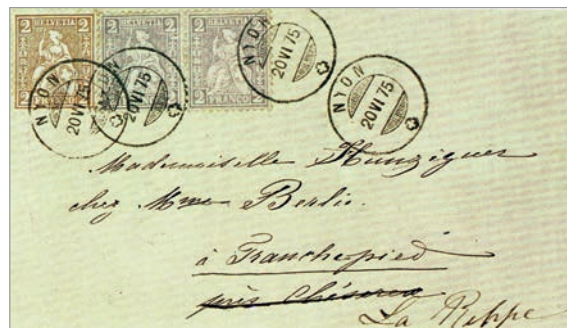 2 HELVETIA 2 2 HELVETIA 2 2 HELVETIA 2
2 2 2 2 2 FRANCO 2
NYON
20 VI 75
NYON
20 VI 75
NYON
20 VI 75
NYON
20 VI 75
Mademoiselle Hunziguer
chez Mme Berlie.
à Tranchepied
près Chéserex
La Rippe